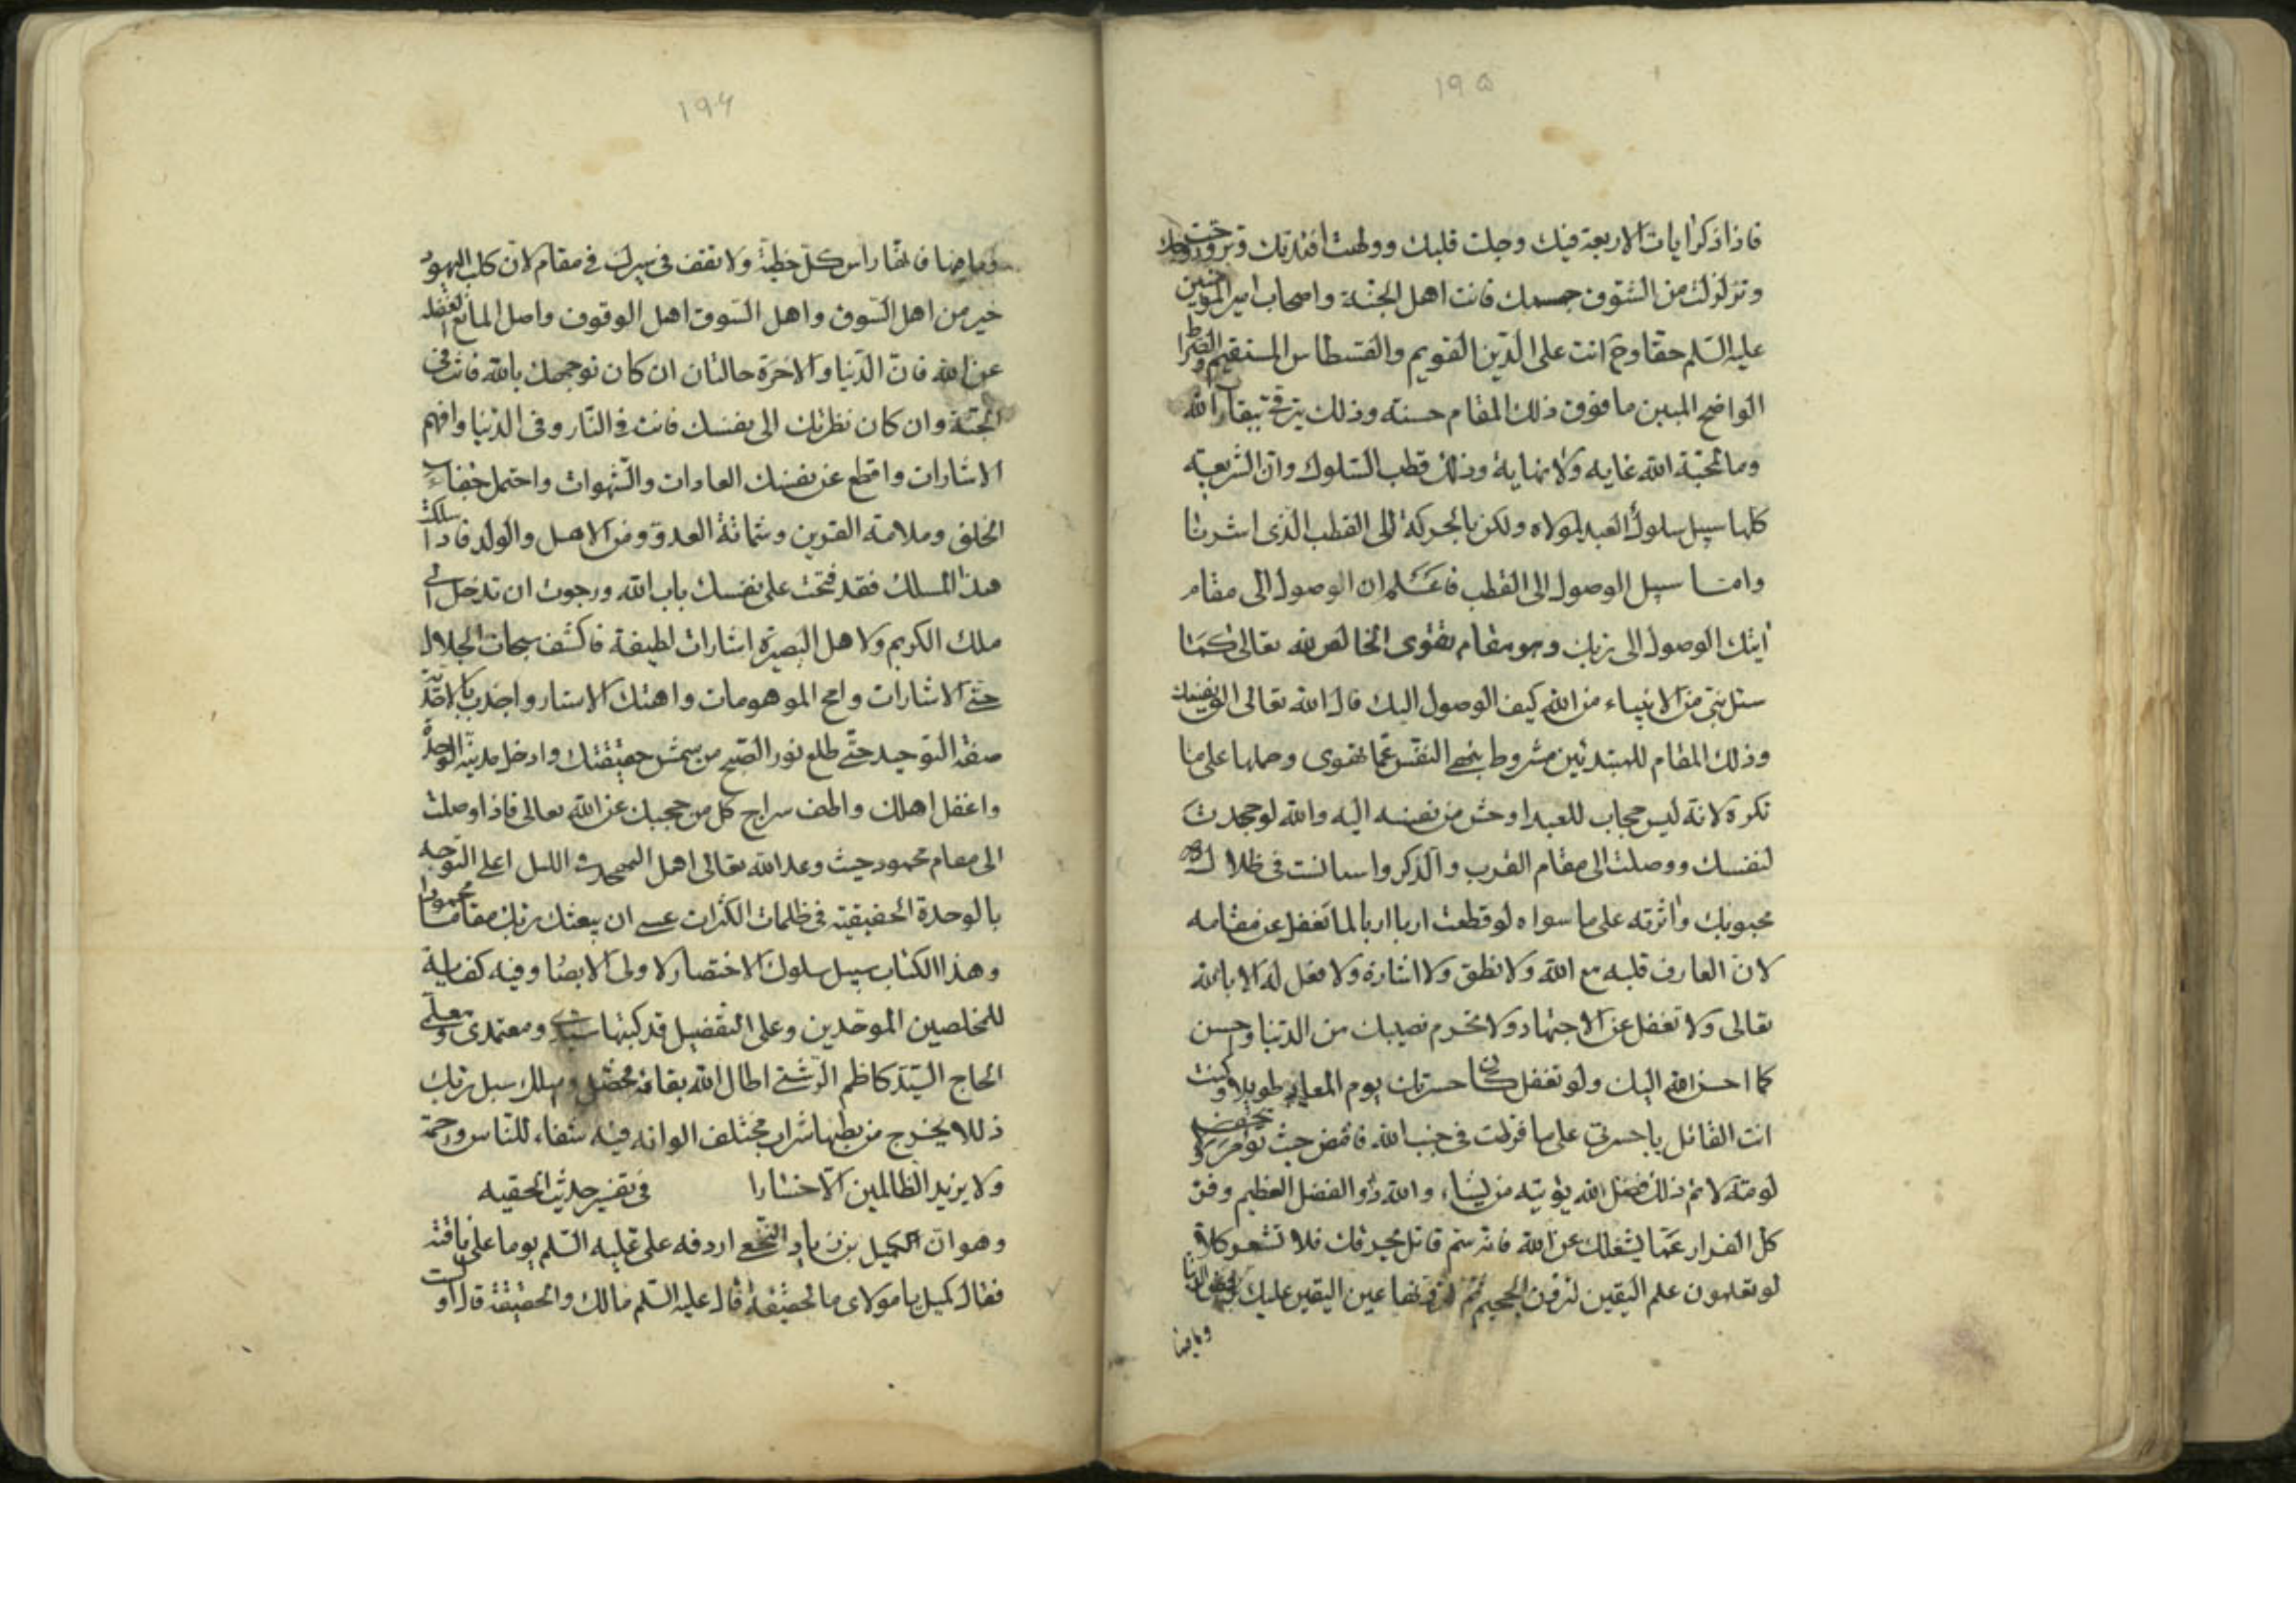 ١٩٥
فاذا ذكر ايات الاربعة فيك وجلت قلبك وولهت افئدتك وتروحت روحك
وتزلزلت من الشوق جسمك فانت اهل الجنة واصحاب امير المؤمنين
عليه السلم حقا وح انت على الدين القويم والقسطاس المستقيم والصراط
الواضح المبين ما فوق ذلك المقام حسنه وذلك يترقى ببقاء الله
وما لمحبة الله غايه ولا نهاية وذلك قطب السلوك وان الشريعه
كلها سبيل سلوك العبد لمولاه ولكن بالحركة الى القطب الذى اشرنا
واما سبيل الوصول الى القطب فاعلم ان الوصول الى مقام
ايتك الوصول الى ربك وهو مقام تقوى الخالص لله تعالى كما
سئل نبى من الانبياء من الله كيف الوصول اليك قال الله تعالى الق نفسك
وذلك المقام للمبتدئين مشروط بنهى النفس عما تهوى وحملها على ما
تكره لانه ليس حجاب للعبد اوحش من نفسه اليه والله لو جحدت
لنفسك ووصلت الى مقام القرب والذكر وانست فى ظلال
محبوبك واثرته على ما سواه لو قطعت اربا اربا لما تغفل عن مقامه
لان العارف قلبه مع الله ولا نطق ولا اشارة ولا فعل له الا بالله
تعالى ولا تغفل عن الاجتهاد ولا تحرم نصيبك من الدنيا واحسن
كما احسن الله اليك ولو تغفل كان حسرتك يوم المعاد طويلا وكنت
انت القائل يا حسرتى على ما فرطت فى جنب الله فامض حيث تؤمر ولا تخف
لومة لائم ذلك فضل الله يؤتيه من يشاء والله ذو الفضل العظيم وفر
كل الفرار عما يشغلك عن الله فانه سم قاتل يحرقك فلا تشعر وكلا
لو تعلمون علم اليقين لترون الجحيم ثم لترونها عين اليقين عليك الدنيا
وما فيها
١٩٤
وما فيها فانها راس كل خطيئة ولا تقف فى سيرك فى مقام لان كلب اليهود
خير من اهل السوق واهل السوق اهل الوقوف واصل المانع الغفله
عن الله فان الدنيا والاخرة حالتان ان كان توجهك بالله فانت فى
الجنة وان كان نظرتك الى نفسك فانت فى النار وفى الدنيا وافهم
الاشارات واقطع عن نفسك العادات والشهوات واحتمل جفاء
الخلق وملامة القرين وشماتة العدو ومن الاهل والولد فاذا سلكت
هذا المسلك فقد فتحت على نفسك باب الله ورجوت ان تدخل فى
ملك الكريم ولاهل البصيرة اشارات لطيفة فاكشف سبحات الجلال
حتى الاشارات وامح الموهومات واهتك الاستار واجذب بالاحدية
صفة التوحيد حتى طلع نور الصبح من شمس حقيقتك وادخل مدينة الوحدة
واغفل اهلك واطف سراج كل من حجبك عن الله تعالى فاذا وصلت
الى مقام محمود حيث وعد الله تعالى اهل التهجد فى الليل اعلى التوجه
بالوحدة الحقيقية فى ظلمات الكثرات عسى ان يبعثك ربك مقاما محمودا
وهذا الكتاب سبيل سلوك الاختصار لاولى الابصار وفيه كفاية
للمخلصين الموحدين وعلى التفصيل قد كتبها سيدى ومعتمدى ومعلمى
الحاج السيد كاظم الرشتى اطال الله بقائه واسلك سبل ربك
ذللا يخرج من بطنها شراب مختلف الوانه فيه شفاء للناس ورحمة
ولا يزيد الظالمين الا خسارا في تفسير حديث الحقيقه
وهو ان الكميل بن زياد النخعى اردفه على عليه السلم يوما على ناقته
فقال كميل يا مولاى ما الحقيقة قال عليه السلم مالك والحقيقة قال اولست